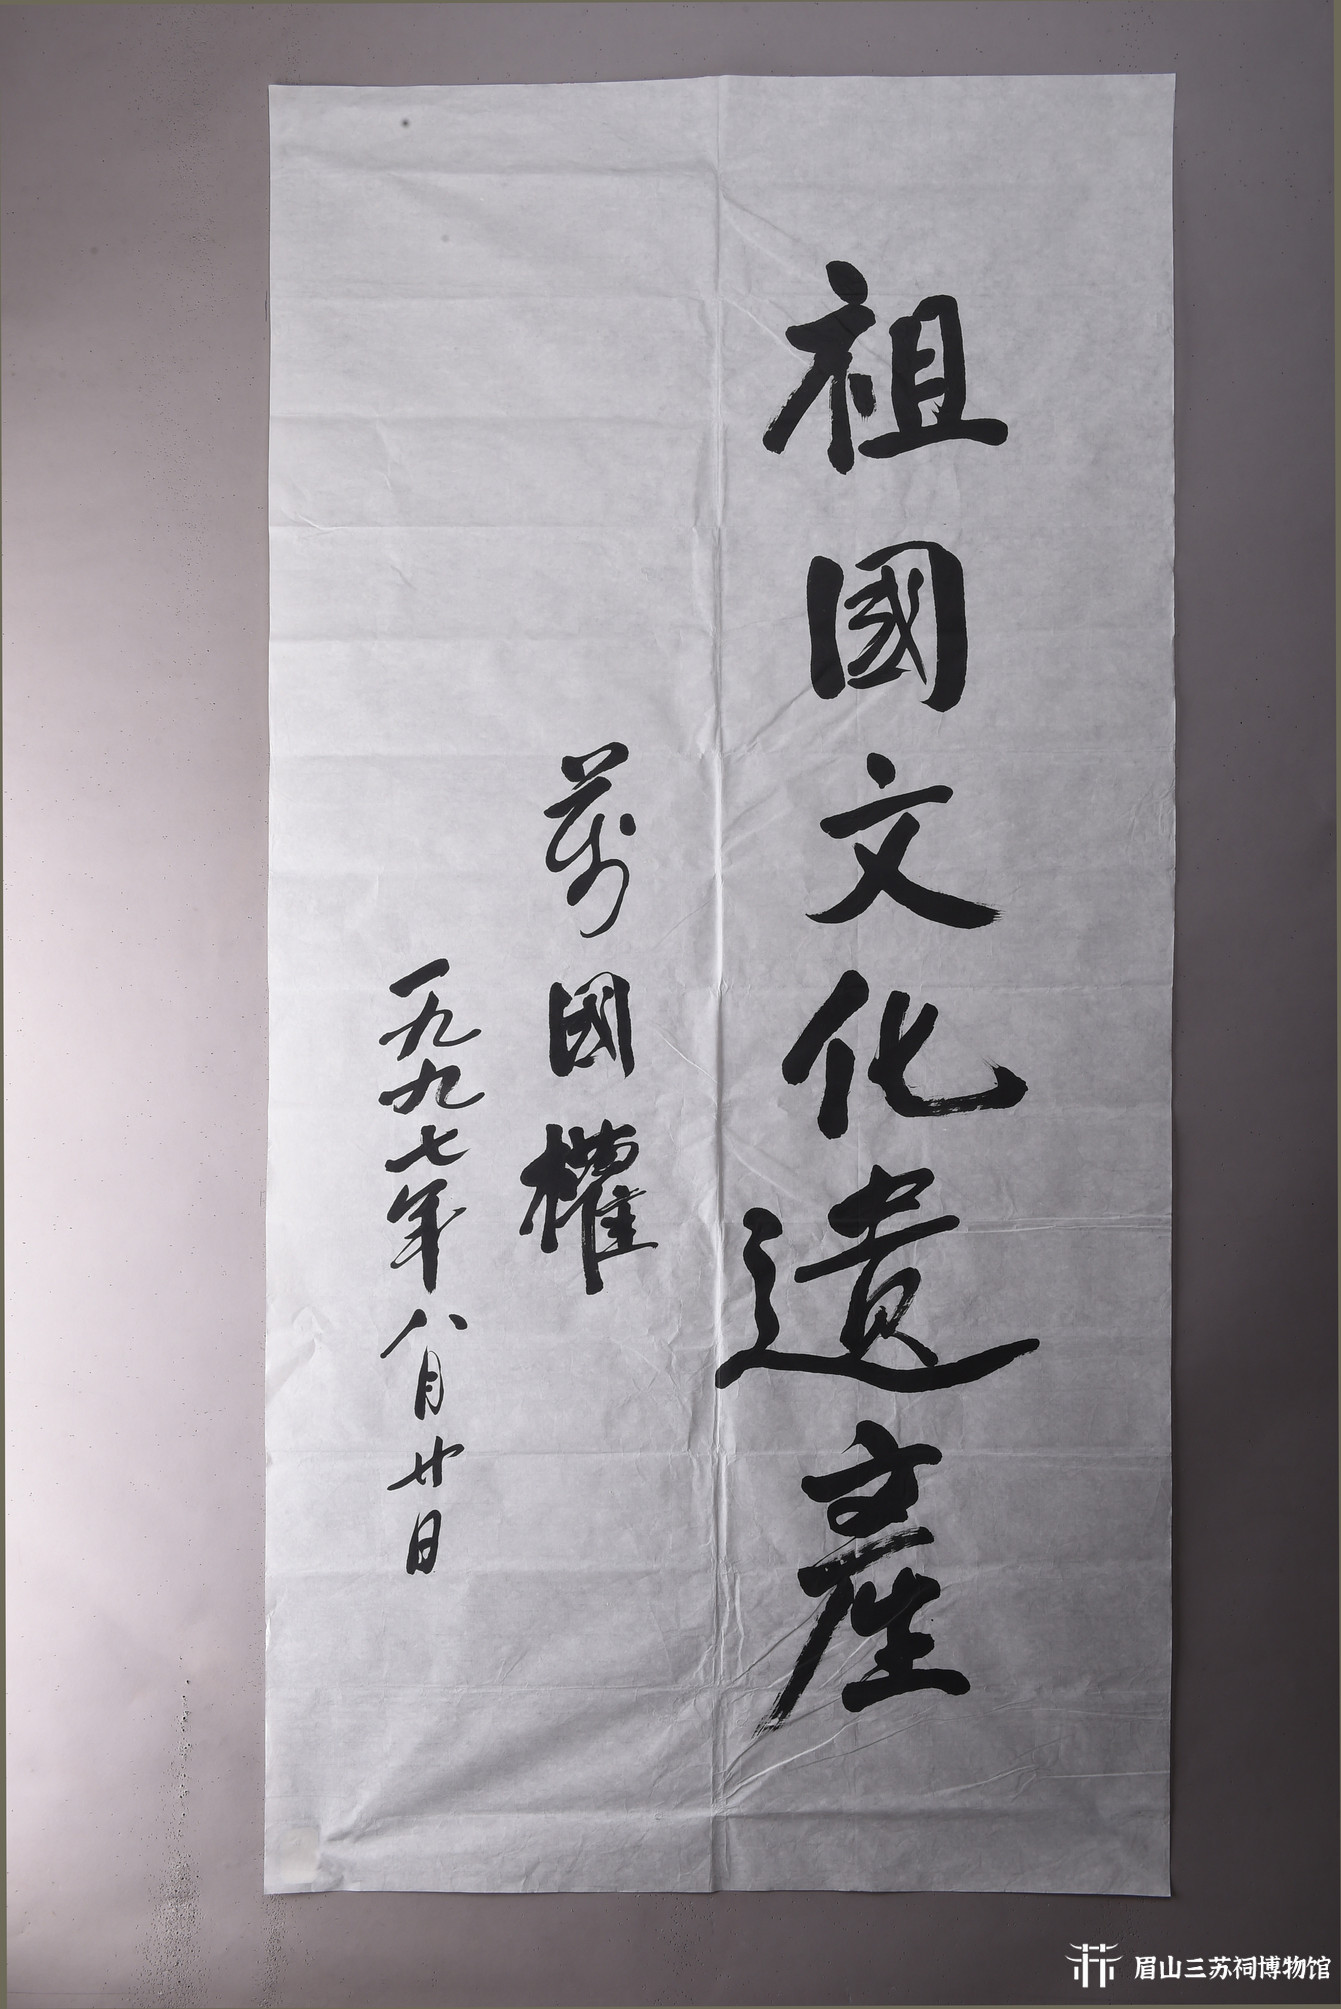 祖國文化遺產
萬國權
一九九七年八月廿日
眉山三苏祠博物馆